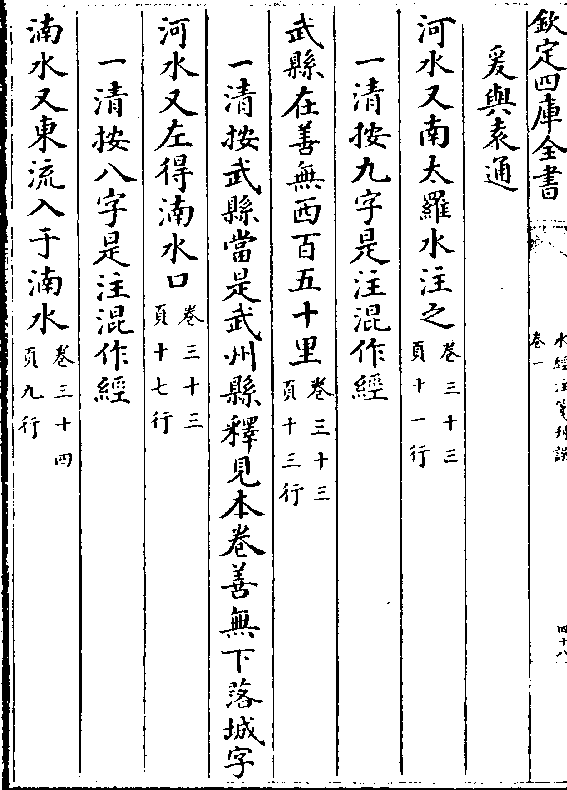 欽定四庫全書
水經注箋刊誤
卷一
四十八
爰與袁通
河水又南太羅水注之卷三十三頁十一行
一清按九字是注混作經
武縣在善無西百五十里卷三十三頁十三行
一清按武縣當是武州縣釋見本卷善無下落城字
河水又左得湳水口卷三十三頁十七行
一清按八字是注混作經
湳水又東流入于湳水卷三十四頁九行